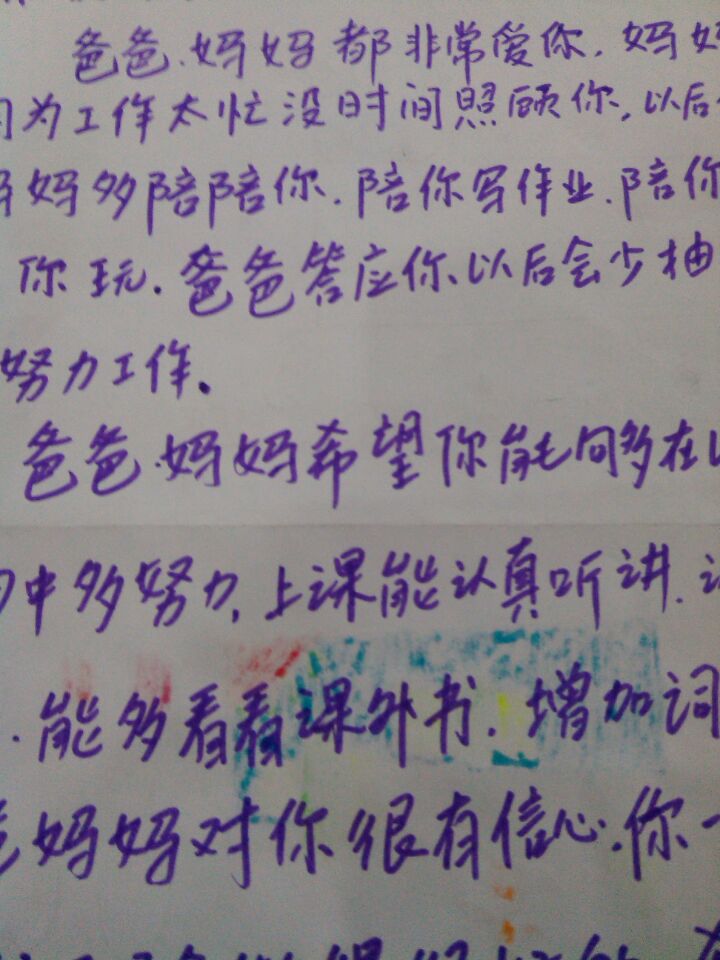 爸爸.妈妈都非常爱你.妈妈
因为工作太忙没时间照顾你,以后
妈妈多陪陪你.陪你写作业.陪你
你玩.爸爸答应你以后会少抽
努力工作.
爸爸.妈妈希望你能够多在以
中多努力,上课能认真听讲.
.能多看看课外书.增加词
爸妈妈对你很有信心.你一